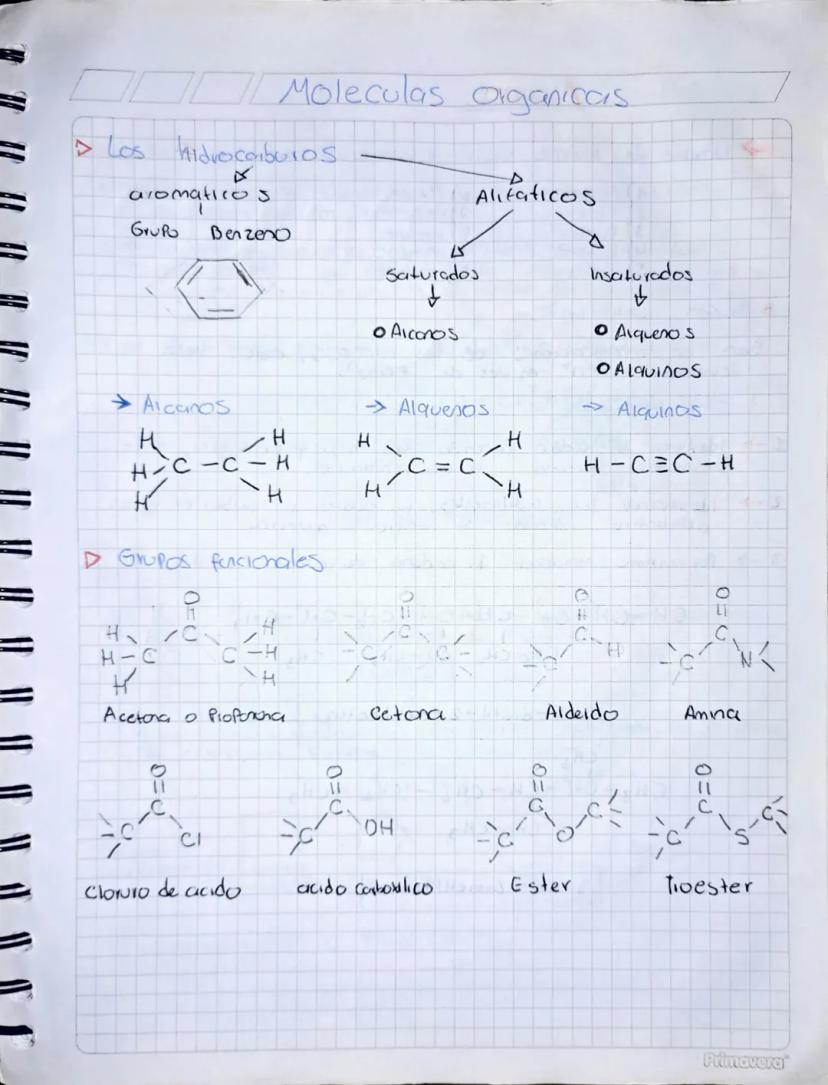 Moleculas organicas
Los hidrocarburos
aromaticos
Alifaticos
Grupo Benzeno
Saturados
Insaturados
Alcanos
Alquenos
Alquinos
Alcanos
Alquenos
Alquinos
H H
H C - C - H
H H
H H
C = C
H H
H - C ≡ C - H
Grupos funcionales
O
H C H
H - C C - H
H H
Acetona o Propanona
O
C
C C
Cetona
O
C
C H
Aldeido
O
C
C N
Amina
O
C
C Cl
Cloruro de acido
O
C
C OH
acido carboxilico
O
C C
C O
Ester
O
C C
C S
Tioester
Primavera